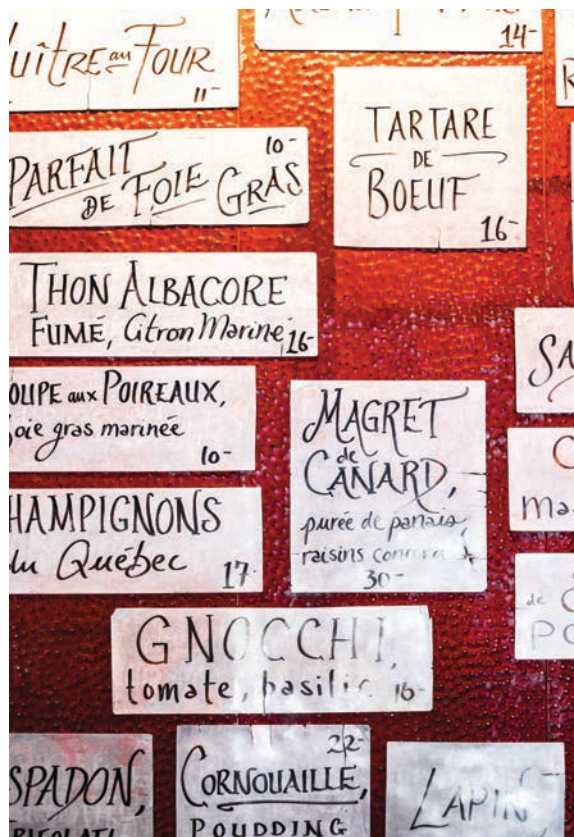 uître au Four
11-
14-
Parfait
de Foie Gras
10-
Tartare
de
Boeuf
16-
Thon Albacore
Fumé, Citron Mariné, 16-
oupe aux Poireaux,
oie gras marinée
10-
Magret
de
Canard,
purée de panais,
raisins
30-
Sa
hampignons
du Québec
17-
ma
de
Gnocchi,
tomate, basilic 16-
Spadon,
22-
Cornouaille,
Poudding
Lapin